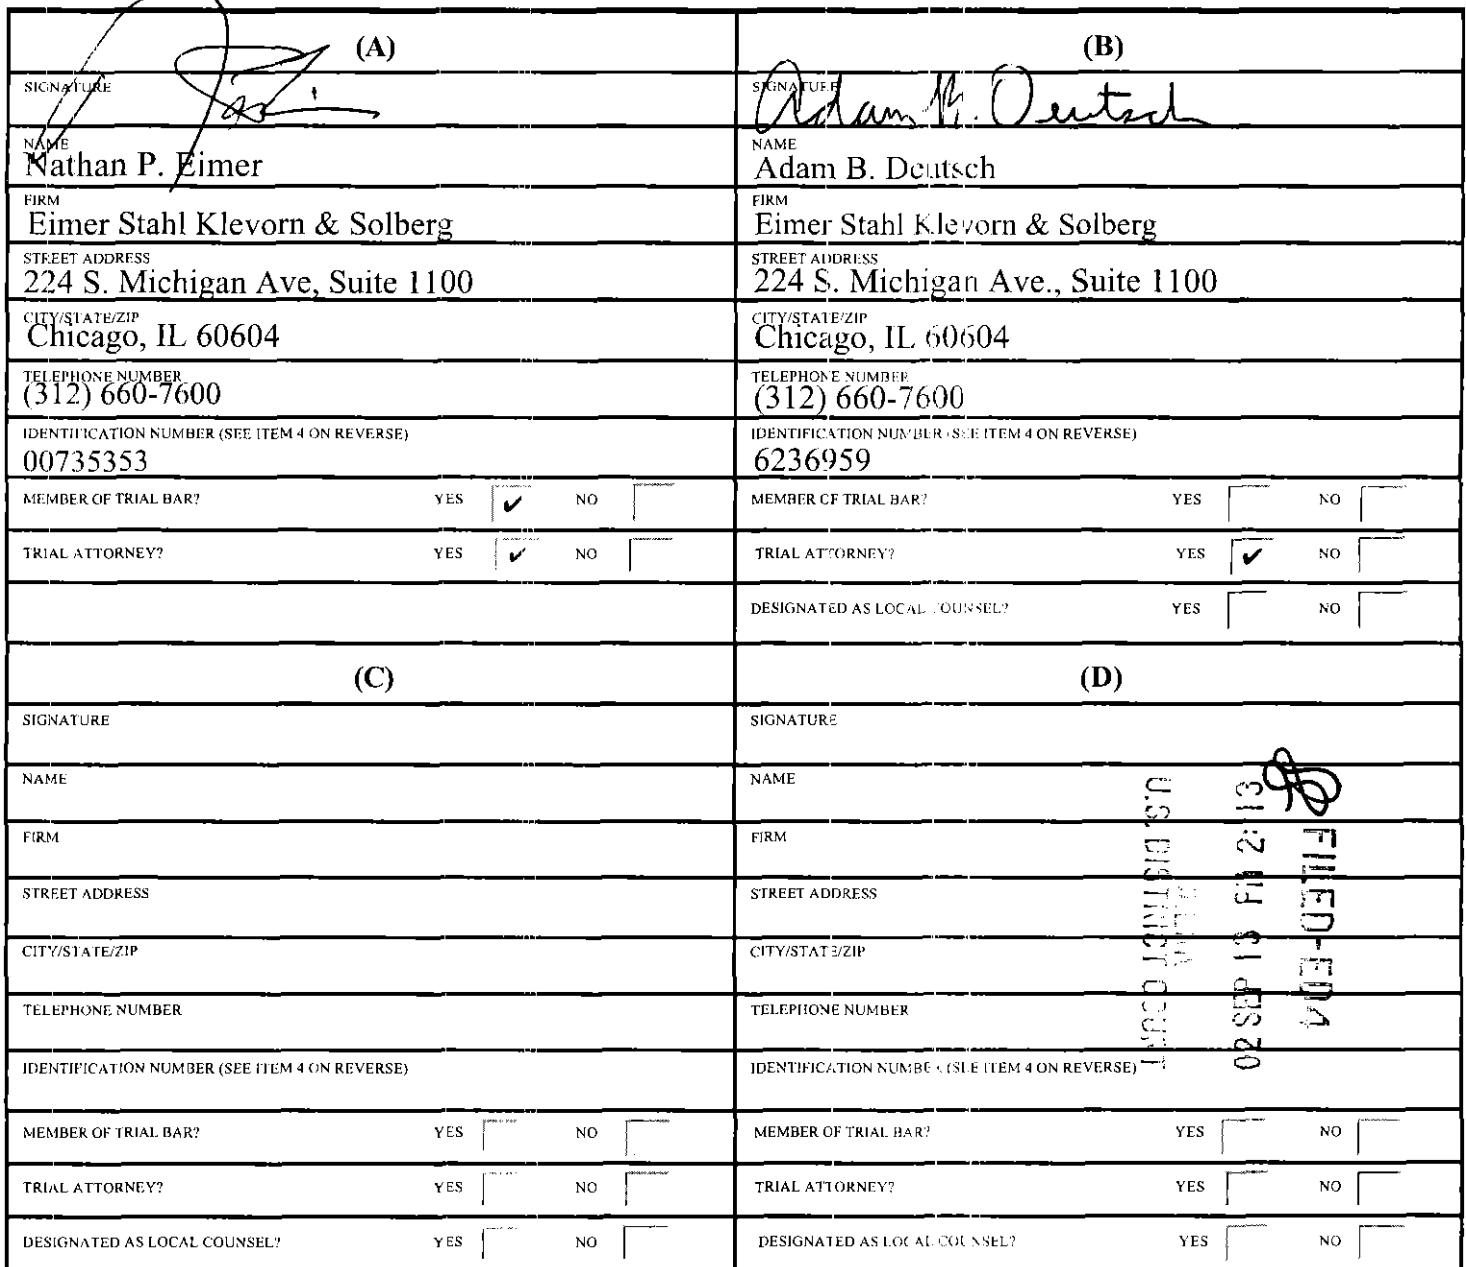 (A)
SIGNATURE
NAME
Nathan P. Eimer
FIRM
Eimer Stahl Klevorn & Solberg
STREET ADDRESS
224 S. Michigan Ave, Suite 1100
CITY/STATE/ZIP
Chicago, IL 60604
TELEPHONE NUMBER
(312) 660-7600
IDENTIFICATION NUMBER (SEE ITEM 4 ON REVERSE)
00735353
MEMBER OF TRIAL BAR? YES ✔ NO
TRIAL ATTORNEY? YES ✔ NO
(B)
SIGNATURE
Adam B. Deutsch
NAME
Adam B. Deutsch
FIRM
Eimer Stahl Klevorn & Solberg
STREET ADDRESS
224 S. Michigan Ave., Suite 1100
CITY/STATE/ZIP
Chicago, IL 60604
TELEPHONE NUMBER
(312) 660-7600
IDENTIFICATION NUMBER (SEE ITEM 4 ON REVERSE)
6236959
MEMBER OF TRIAL BAR? YES NO
TRIAL ATTORNEY? YES ✔ NO
DESIGNATED AS LOCAL COUNSEL? YES NO
(C)
SIGNATURE
NAME
FIRM
STREET ADDRESS
CITY/STATE/ZIP
TELEPHONE NUMBER
IDENTIFICATION NUMBER (SEE ITEM 4 ON REVERSE)
MEMBER OF TRIAL BAR? YES NO
TRIAL ATTORNEY? YES NO
DESIGNATED AS LOCAL COUNSEL? YES NO
(D)
SIGNATURE
NAME
FIRM
STREET ADDRESS
CITY/STATE/ZIP
TELEPHONE NUMBER
IDENTIFICATION NUMBER (SEE ITEM 4 ON REVERSE)
MEMBER OF TRIAL BAR? YES NO
TRIAL ATTORNEY? YES NO
DESIGNATED AS LOCAL COUNSEL? YES NO
FILED-ED4
02 SEP 13 PM 2:13
U.S. DISTRICT COURT